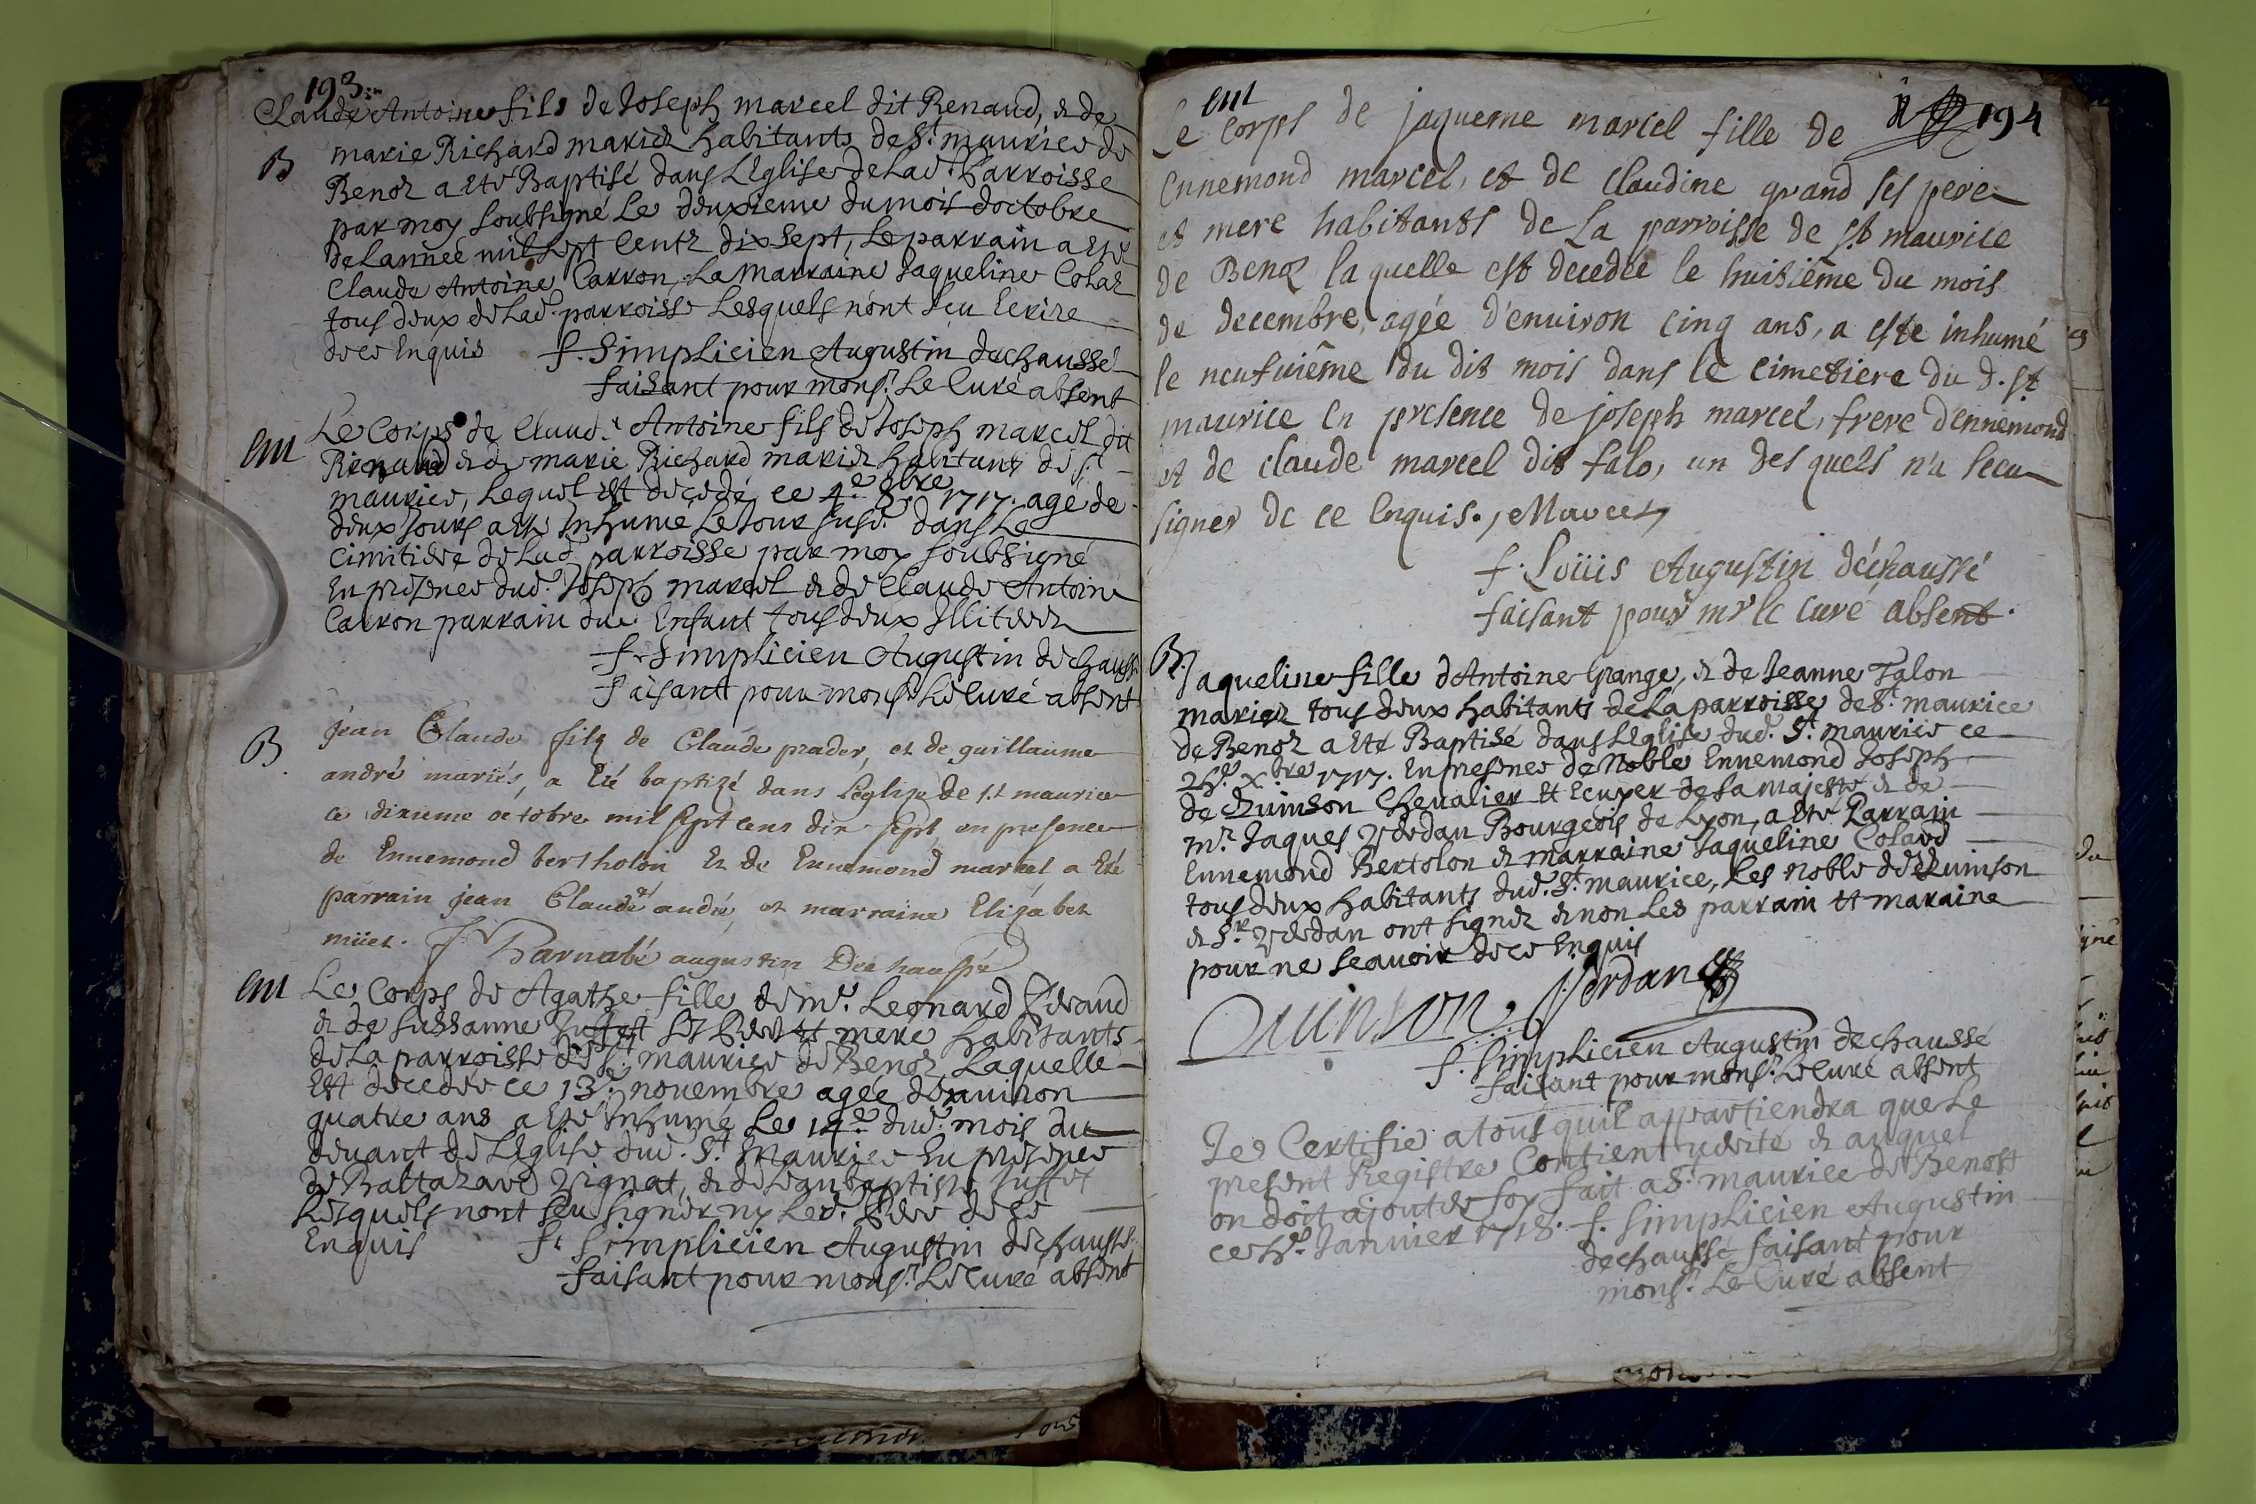 193
Claude Antoine fils de Joseph marcel dit Renaud, & de
B
marie Richard mariéz habitants de St. maurice de
Benoz a eté Baptisé dans L'Eglise de Lad. Parroisse
par moy soubsigné Le deuxieme du mois doctobre
de Lannée mil sept Centz dix sept, Le parrain a eté
Claude Antoine Carron, La marraine Jaqueline Colaz
tous deux de Lad. parroisse Lesquels n'ont sçu Ecrire
de ce Enquis f. Simplicien Augustin dechaussé
faisant pour mons.r Le Curé absent
em
Le Corps de Claud. Antoine fils de Joseph marcel dit
Renaud & de marie Richard mariéz habitans de St
maurice, Lequel est decedé ce 4e 8bre 1717. agé de
deux Jours a eté Inhumé Le Jour susd. dans Le
Cimitiere de Lad. parroisse par moy soubsigné
En presence dud. Joseph marcel & de Claude Antoine
Carron parrain dud. Enfant tous deux Illiterez
f. Simplicien Augustin dechaussé
faisant pour mons.r Le curé absent
B.
jean Claude fils de Claude prader, et de guillaume
andré mariés, a eté baptizé dans l'eglise de st maurice
ce dixieme octobre mil sept cens dix sept, en presence
de Ennemond bertholon Et de Ennemond marcel a Eté
parrain jean Claude andré, et marraine Elizabet
müet. f. Barnabé augustin Dechaussé
em
Le Corps de Agathe fille de mr. Leonard
& de sussanne Juffet ses Pere et mere habitants
de La parroisse de St. maurice de Benoz Laquelle
Est decedée ce 13e. novembre agée denuiron
quatre ans a Eté Inhumé Le 14e. dud. mois du
deuant de L'Eglise dud. St. Maurice En presence
de Baltazard Vignat, & de Jean baptiste Juffet
Lesquels nont sçu signer ny Led. Pere de ce
Enquis f. Simplicien Augustin dechaussé
faisant pour mons.r Le Curé absent
em
194
Le corps de jaqueme marcel fille de
Ennemond marcel, et de claudine grand ses pere
et mere habitants de La parroisse de st maurice
de Benoz laquelle est decedée le huitième du mois
de decembre, agée d'environ cinq ans, a este inhumé
le neufuième du dit mois dans le cimetiere du d. st
maurice en presence de joseph marcel, frere d'ennemond
et de claude marcel dit falo, un des quels n'a sceu
signer de ce enquis., Marcel
f. Loüis Augustin déchaussé
faisant pour mr le curé absent.
B.
Jaqueline fille d'Antoine Grange, & de Jeanne Talon
mariez tous deux habitants de La parroisse de St. maurice
de Benoz a eté Baptisé dans L'Eglise dud. St. maurice ce
xbre 1717. En presence de Noble Ennemond Joseph
de Quinson Chevalier et Ecuyer de sa majesté & de
mr. Jaques Yerdan Bourgeois de Lyon, a Eté Parrain
Ennemond Bertolon & marraine Jaqueline Colard
tous deux habitants dud. St. maurice, Les noble de Quinson
& Sr. Yerdan ont signéz & non Les parrain et maraine
pour ne sçavoir de ce Enquis
Quinson. Jerdan
f. Simplicien Augustin dechaussé
faisant pour mons.r Le Curé absent
Je Certifie a tous quil appartiendra que Le
present Registre Contient verité & auquel
on doit ajouter foy fait a St. maurice de Benost
ce Janvier 1718. f. Simplicien Augustin
dechaussé faisant pour
mons.r Le Curé absent